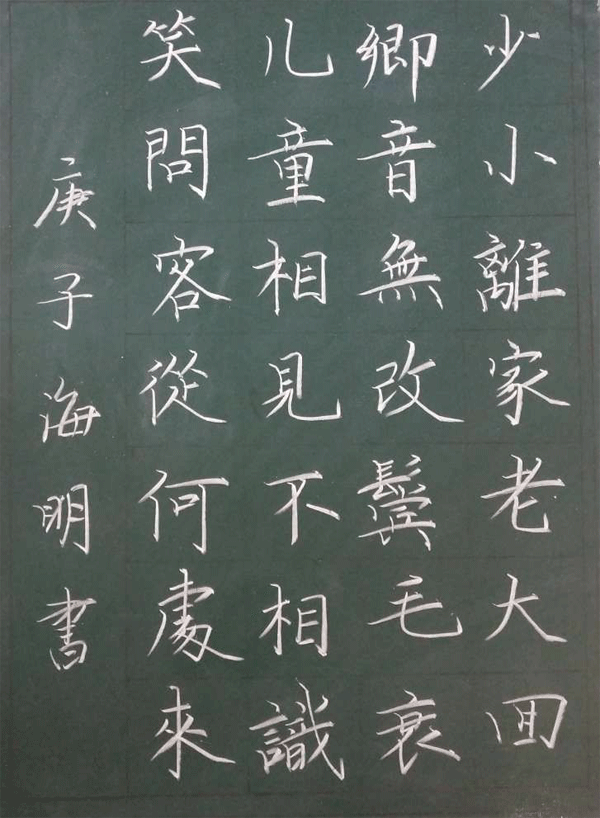 少小離家老大囬
鄉音無改鬢毛衰
儿童相見不相識
笑問客從何處來
庚子海明書